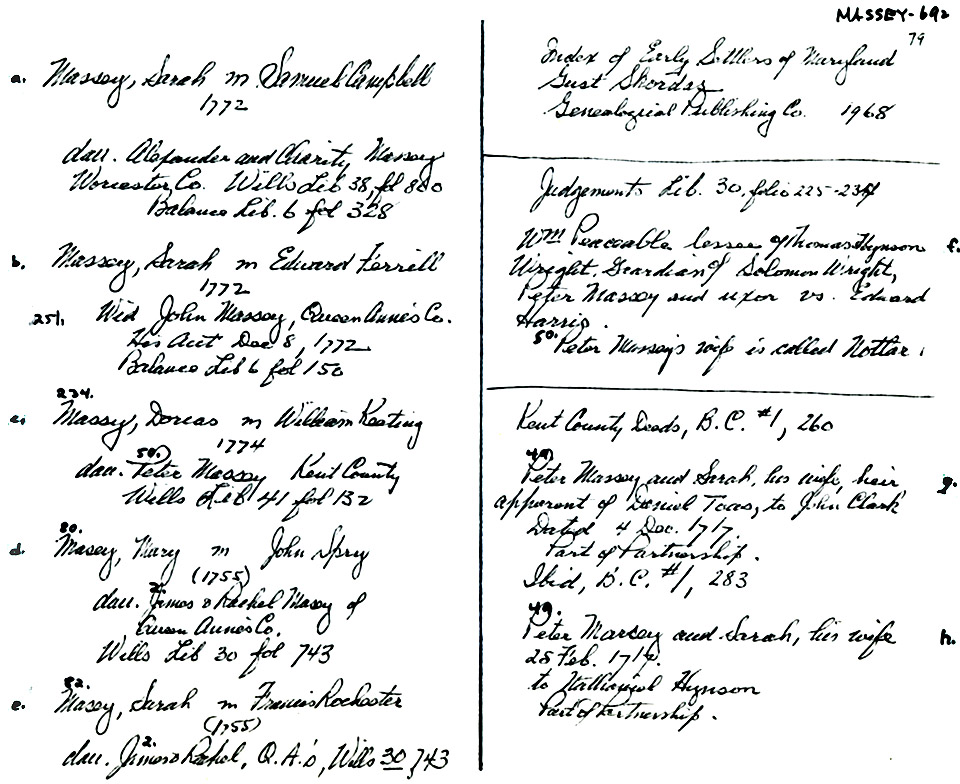 MASSEY-692
79
a. Massey, Sarah m Samuel Campbell
1772
dau. Alexander and Charity Massey
Worcester Co. Wills Lib 38, fol 800
Balance Lib. 6 fol 328
b. Massey, Sarah m Edward Ferrell
1772
251. Wid John Massey, Queen Anne's Co.
His Acct Dec 8, 1772
Balance Lib 6 fol 150
234.
c. Massey, Dorcas m William Keating
1774
50.
dau. Peter Massey Kent County
Wills Lib 41 fol 132
80.
d. Masey, Mary m John Spry
(1755)
2.
dau. James & Rachel Masey of
Queen Anne's Co.
Wills Lib 30 fol 743
82.
e. Masey, Sarah m Francis Rochester
(1755)
2.
dau. James & Rachel, Q.A.'s, Wills 30, 743
Index of Early Settlers of Maryland
Gust Skordas
Genealogical Publishing Co. 1968
Judgements Lib. 30, folio 225-234
Wm Peaceable lessee of Thomas Hynson f.
Wright, Guardian of Solomon Wright,
Peter Massey and uxor vs. Edward
Harris.
50. Peter Massey's wife is called Nottar.
Kent County Deeds, B.C. #1, 260
49.
Peter Massey and Sarah, his wife, heir g.
apparent of Daniel Toas, to John Clark
Dated 4 Dec. 1717
Part of Partnership.
Ibid, B.C. #1, 283
49.
Peter Marsey and Sarah, his wife h.
25 Feb.
to Nathaniel Hynson
Part of Partnership.